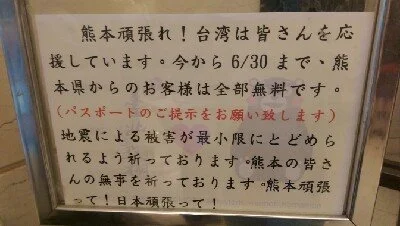 熊本頑張れ！台湾は皆さんを応
援しています。今から 6/30 まで、熊
本県からのお客様は全部無料です。
(パスポートのご提示をお願い致します)
地震による被害が最小限にとどめら
れるよう祈っております。熊本の皆さ
んの無事を祈っております。熊本頑張
って！日本頑張って！